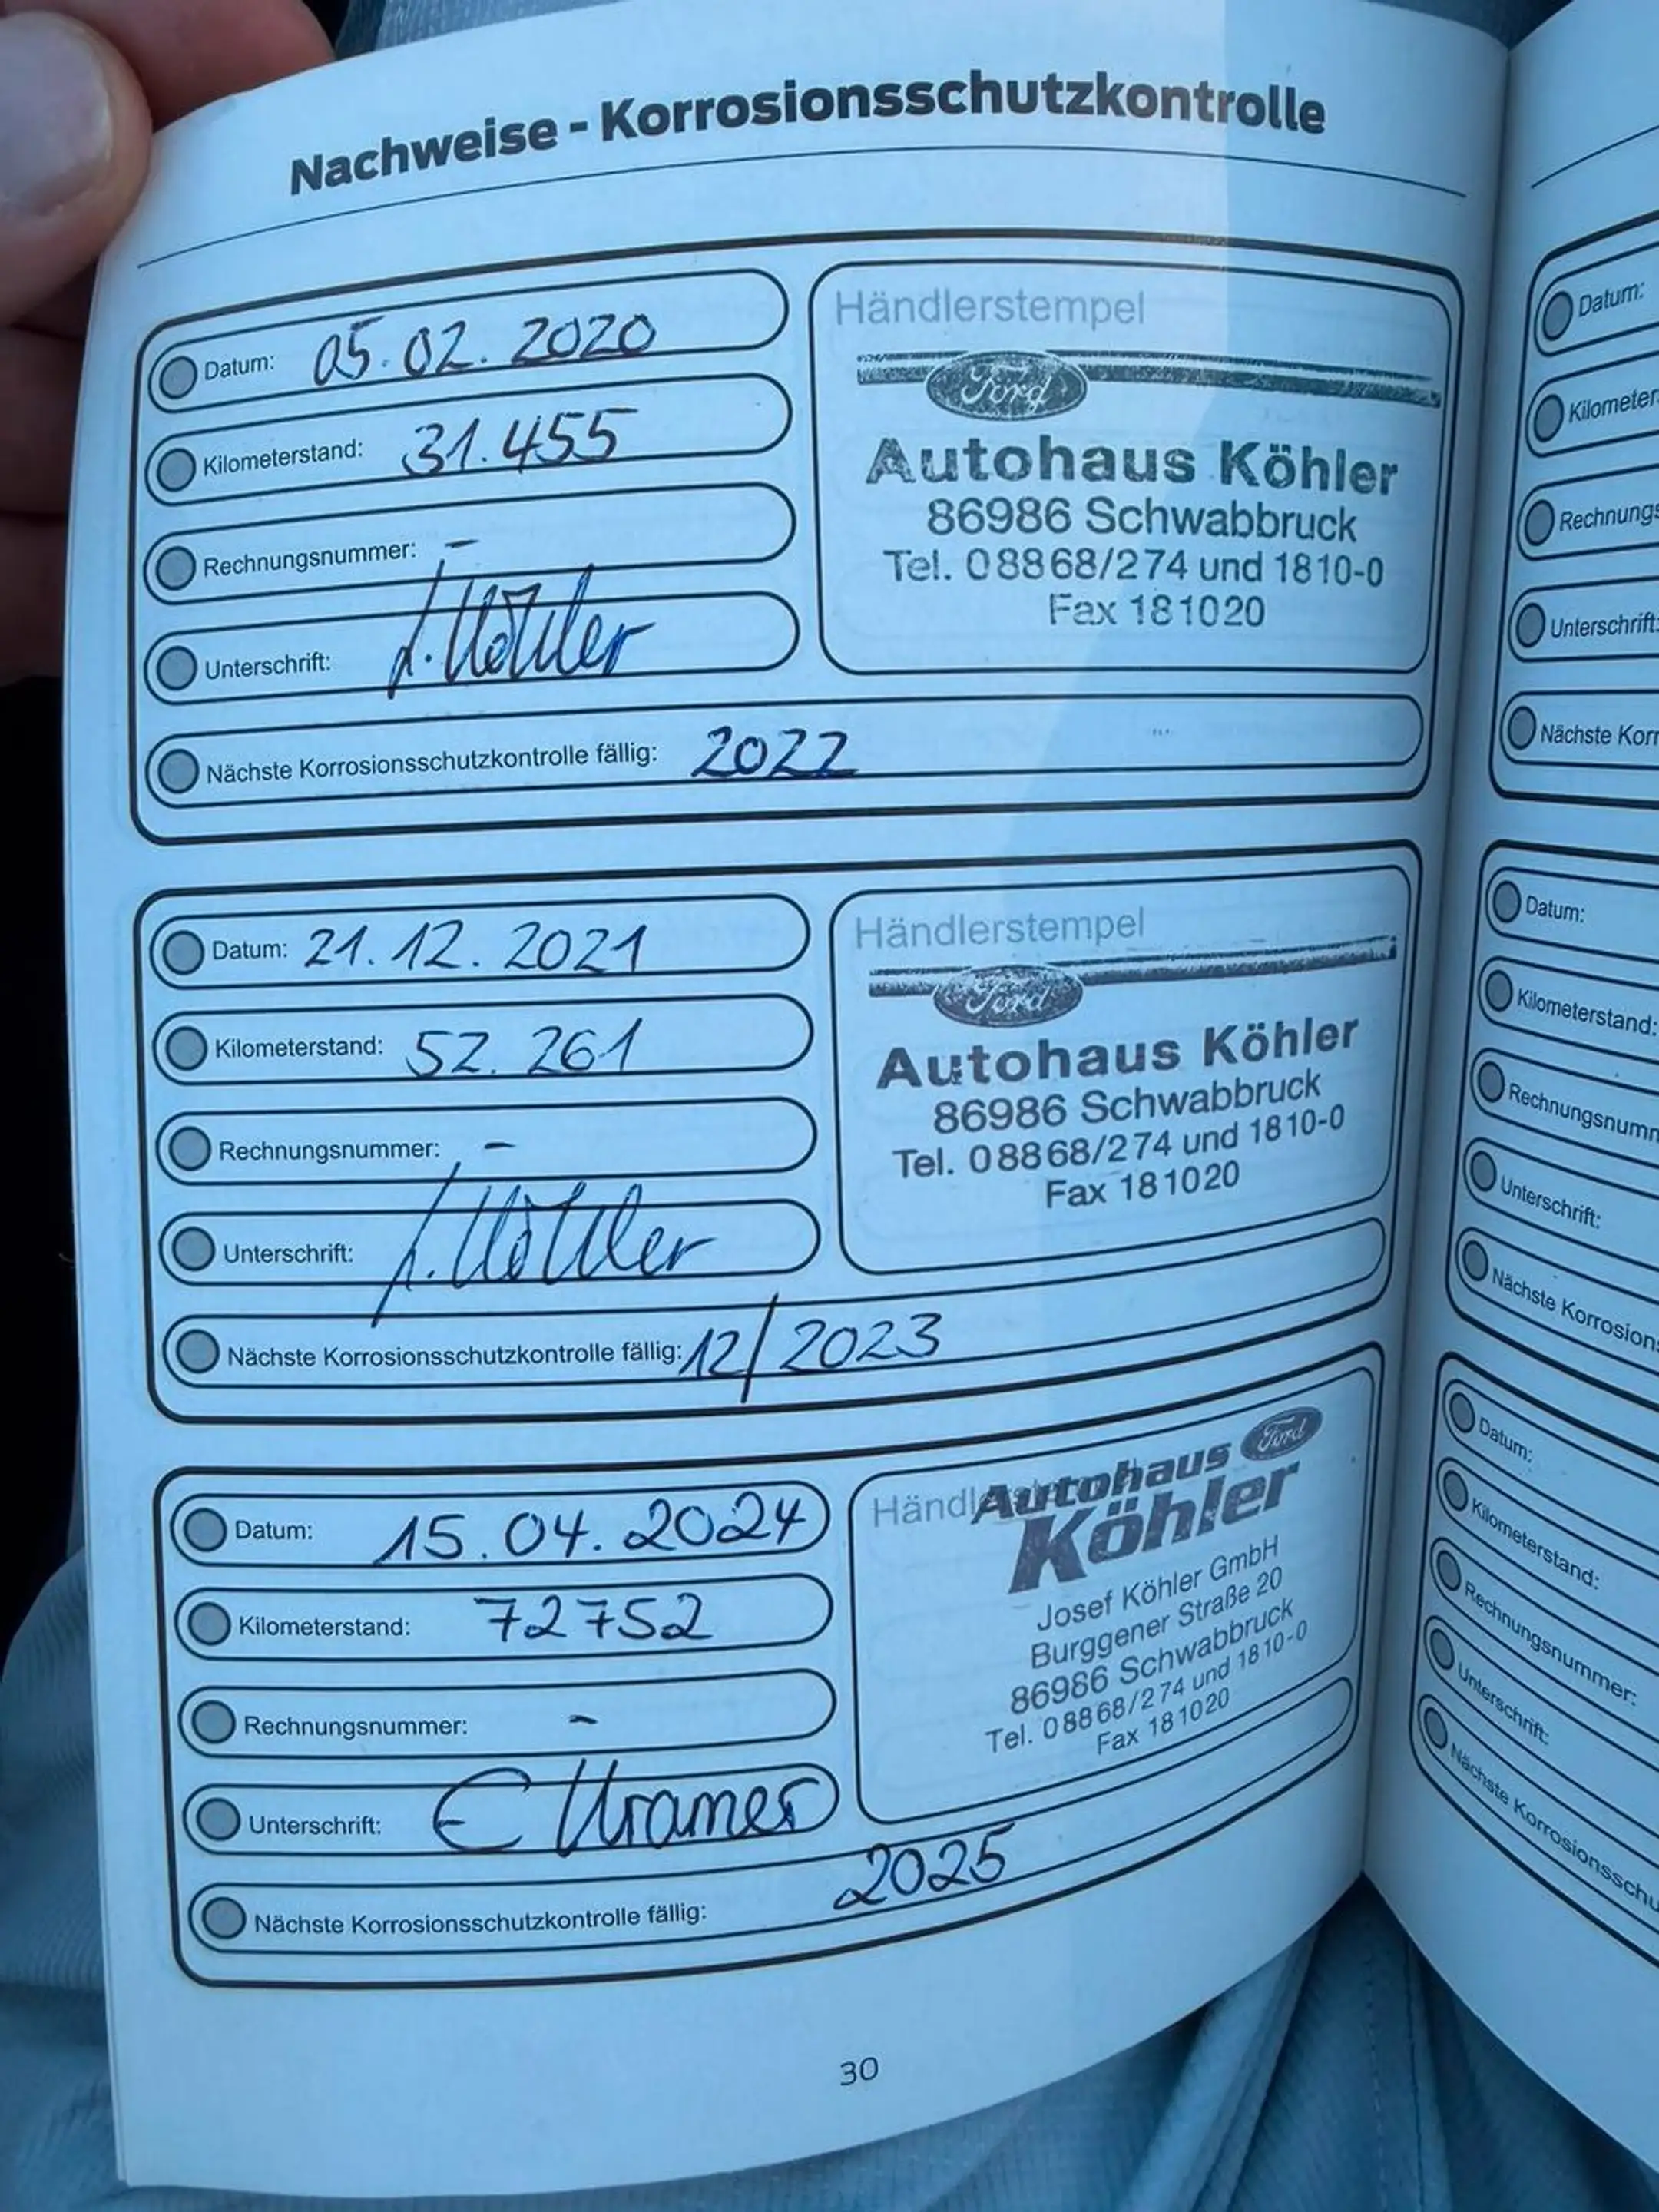 Nachweise - Korrosionsschutzkontrolle
Datum: 05.02.2020
Kilometerstand: 31.455
Rechnungsnummer: -
Unterschrift: J. Köhler
Nächste Korrosionsschutzkontrolle fällig: 2022
Händlerstempel
Ford
Autohaus Köhler
86986 Schwabbruck
Tel. 08868/274 und 1810-0
Fax 181020
Datum: 21.12.2021
Kilometerstand: 52.261
Rechnungsnummer: -
Unterschrift: J. Köhler
Nächste Korrosionsschutzkontrolle fällig: 12/2023
Händlerstempel
Ford
Autohaus Köhler
86986 Schwabbruck
Tel. 08868/274 und 1810-0
Fax 181020
Datum: 15.04.2024
Kilometerstand: 72752
Rechnungsnummer: -
Unterschrift: E Kramer
Nächste Korrosionsschutzkontrolle fällig: 2025
Händl
Autohaus Ford
Köhler
Josef Köhler GmbH
Burggener Straße 20
86986 Schwabbruck
Tel. 08868/274 und 1810-0
Fax 181020
30
Datum:
Kilometer
Rechnungs
Unterschrift:
Nächste Korr
Datum:
Kilometerstand:
Rechnungsnumm
Unterschrift:
Nächste Korrosions
Datum:
Kilometerstand:
Rechnungsnummer:
Unterschrift:
Nächste Korrosionsschu